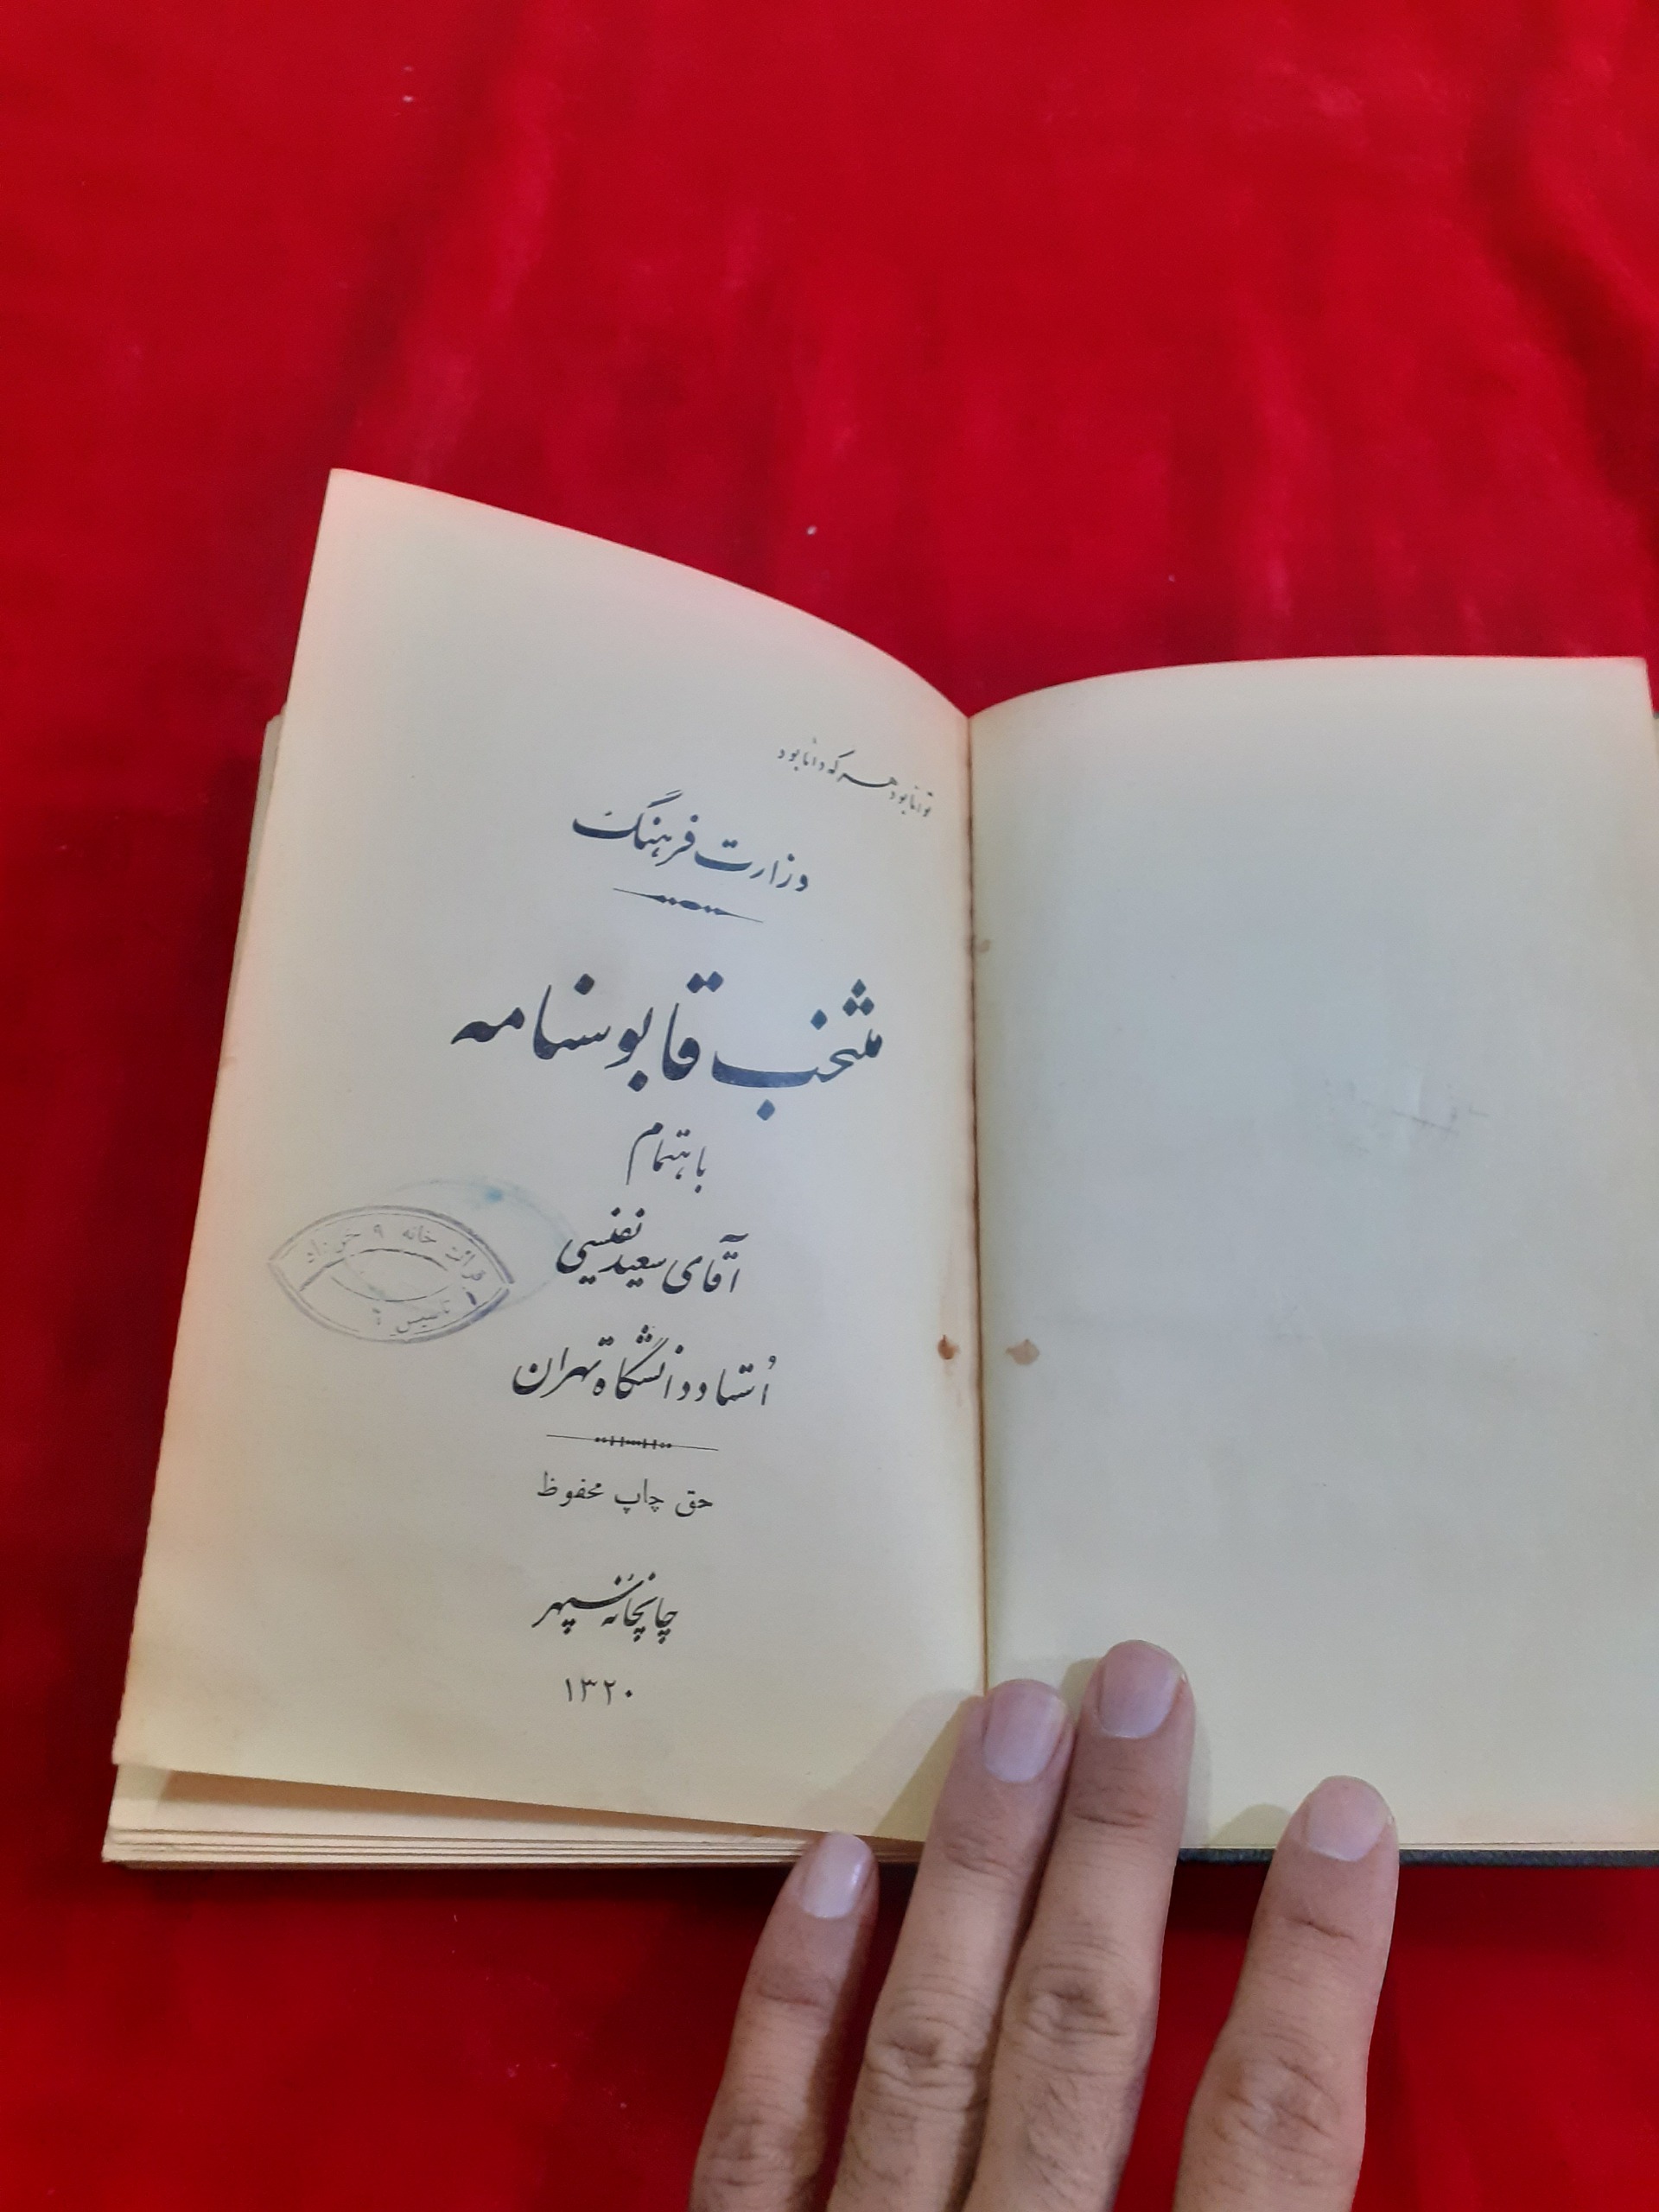 توانا بود هر که دانا بود
وزارت فرهنگ
منتخب قابوسنامه
باهتمام
آقای سعید نفیسی
اُستاد دانشگاه تهران
حق چاپ محفوظ
چاپخانهٔ سپهر
۱۳۲۰
قرائت خانه ۹
تاسیس